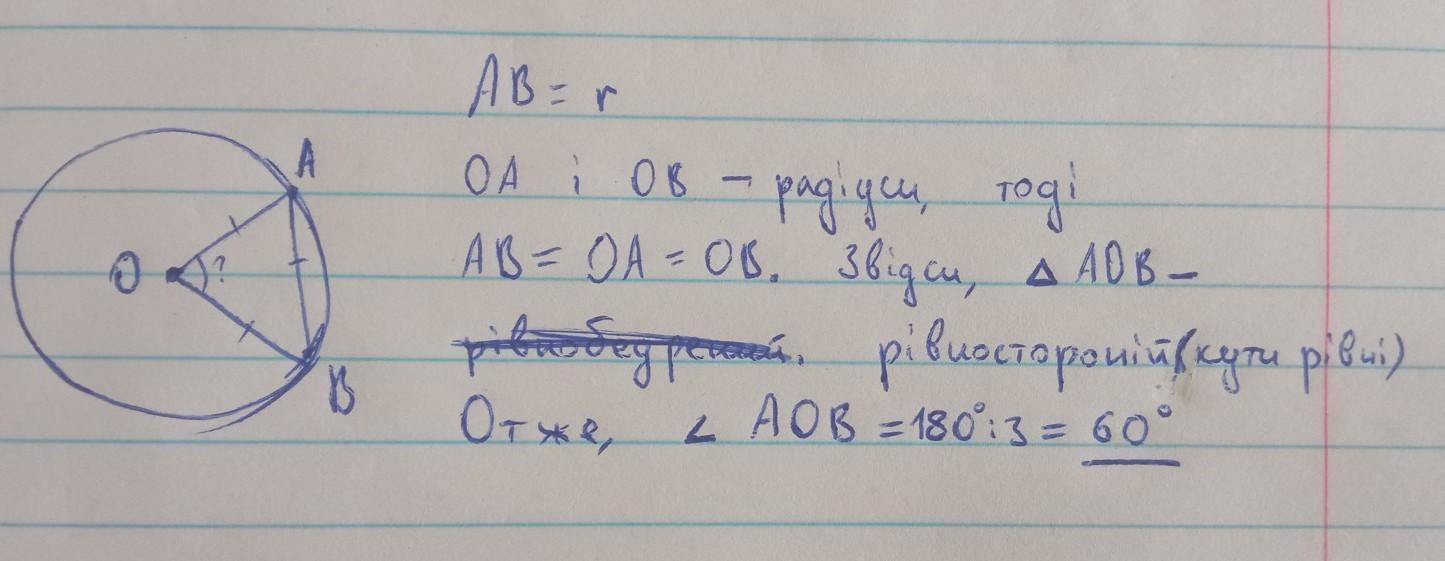 AB = r
A
OA і OB – радіуси, тоді
O ?
AB = OA = OB. Звідси, △ AOB –
B
рівнобедрений. рівностороній (кути рівні)
Отже, ∠ AOB = 180° : 3 = 60°